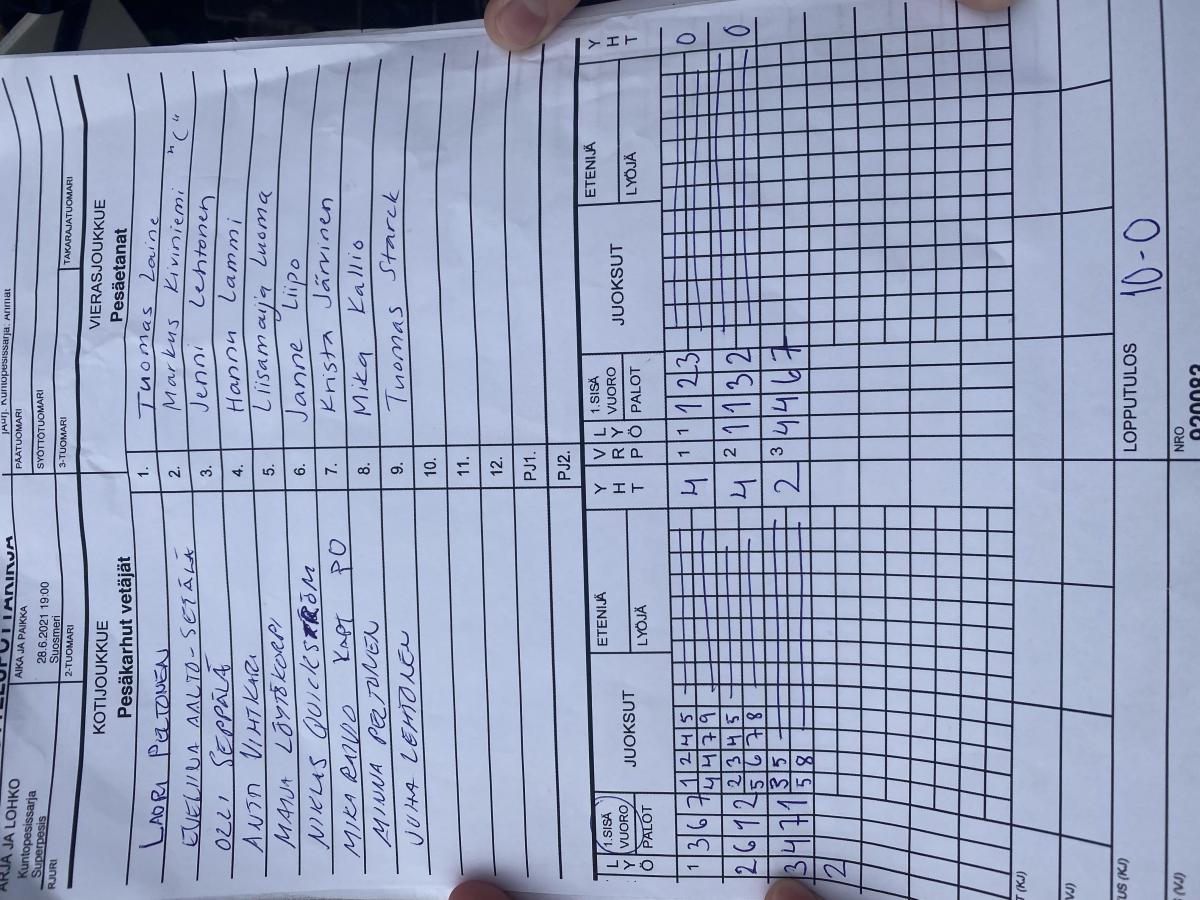 ARJA JA LOHKO
Kuntopesissarja
Superpesis
AIKA JA PAIKKA
28.6.2021 19:00
Suosmeri
PÄÄTUOMARI
SYÖTTÖTUOMARI
RJURI
2-TUOMARI
3-TUOMARI
TAKARAJATUOMARI
KOTIJOUKKUE
Pesäkarhut vetäjät
VIERASJOUKKUE
Pesäetanat
LAURI PELTONEN
1.
Tuomas Laine
EVELIINA AALTO-SETÄLÄ
2.
Markus Kiviniemi "C"
OLLI SEPPÄLÄ
3.
Jenni Lehtonen
ANTTI VIHTKARI
4.
Hannu Lammi
MAIJA LÖYTÖKORPI
5.
Liisamaija Luoma
NIKLAS QUICKSTRÖM
6.
Janne Liipo
MIKA RAIVO KAPT PO
7.
Krista Järvinen
MINNA PELTONEN
8.
Mika Kallio
JUHA LEHTONEN
9.
Tuomas Starck
10.
11.
12.
PJ1.
PJ2.
L Y Ö
1.SISÄ VUORO
PALOT
JUOKSUT
ETENIJÄ
LYÖJÄ
Y H T
V R P
L Y Ö
1.SISÄ VUORO
PALOT
JUOKSUT
ETENIJÄ
LYÖJÄ
Y H T
1 3 6 7 1 2 4 5 4 1 1 1 2 3 0
4 4 7 9
2 6 9 2 2 3 4 5 4 2 1 1 3 2 0
5 6 7 8
3 4 7 1 3 5 2 3 4 4 6 7
5 8
2
T (KJ)
VJ)
TUS (KJ)
LOPPUTULOS
10-0
(VJ)
NRO
920083